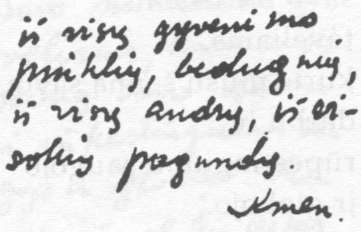 iš visų gyvenimo
pinklių, bedugnių,
iš visų audrų, iš vi-
sokių pagundų.
Kmen.